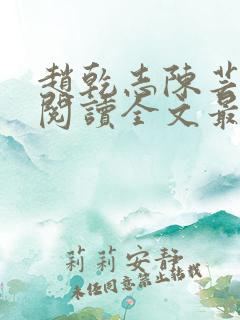 趙乾志陳芸
閱讀全文最
莉莉安靜
未經同意禁止轉載